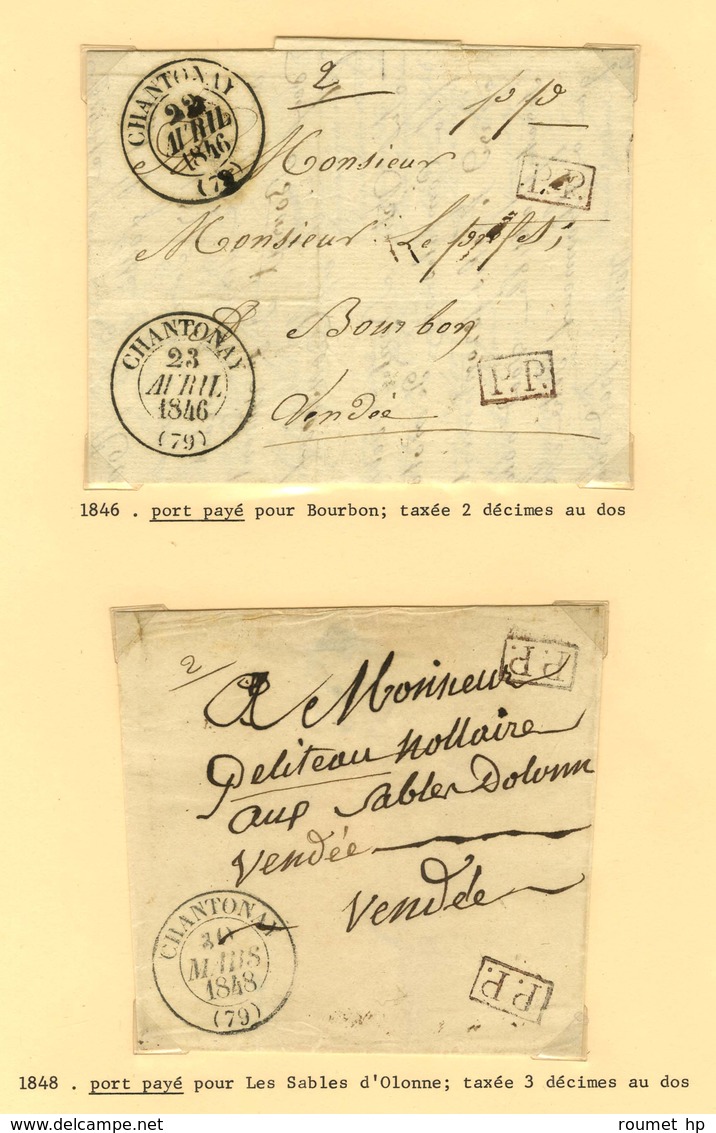 CHANTONAY
22
AVRIL
1846
(79)
2
pp
P.P.
Monsieur
Monsieur Le préfet
CHANTONAY
23
AVRIL
1846
(79)
A Bourbon
P.P.
Vendée
1846 . port payé pour Bourbon; taxée 2 décimes au dos
P.P.
2
A Monsieur
Petiteau nottaire
aux Sables Dolonn
Vendée
Vendée
CHANTONAY
MARS
1848
(79)
P.P.
1848 . port payé pour Les Sables d'Olonne; taxée 3 décimes au dos
roumet hp